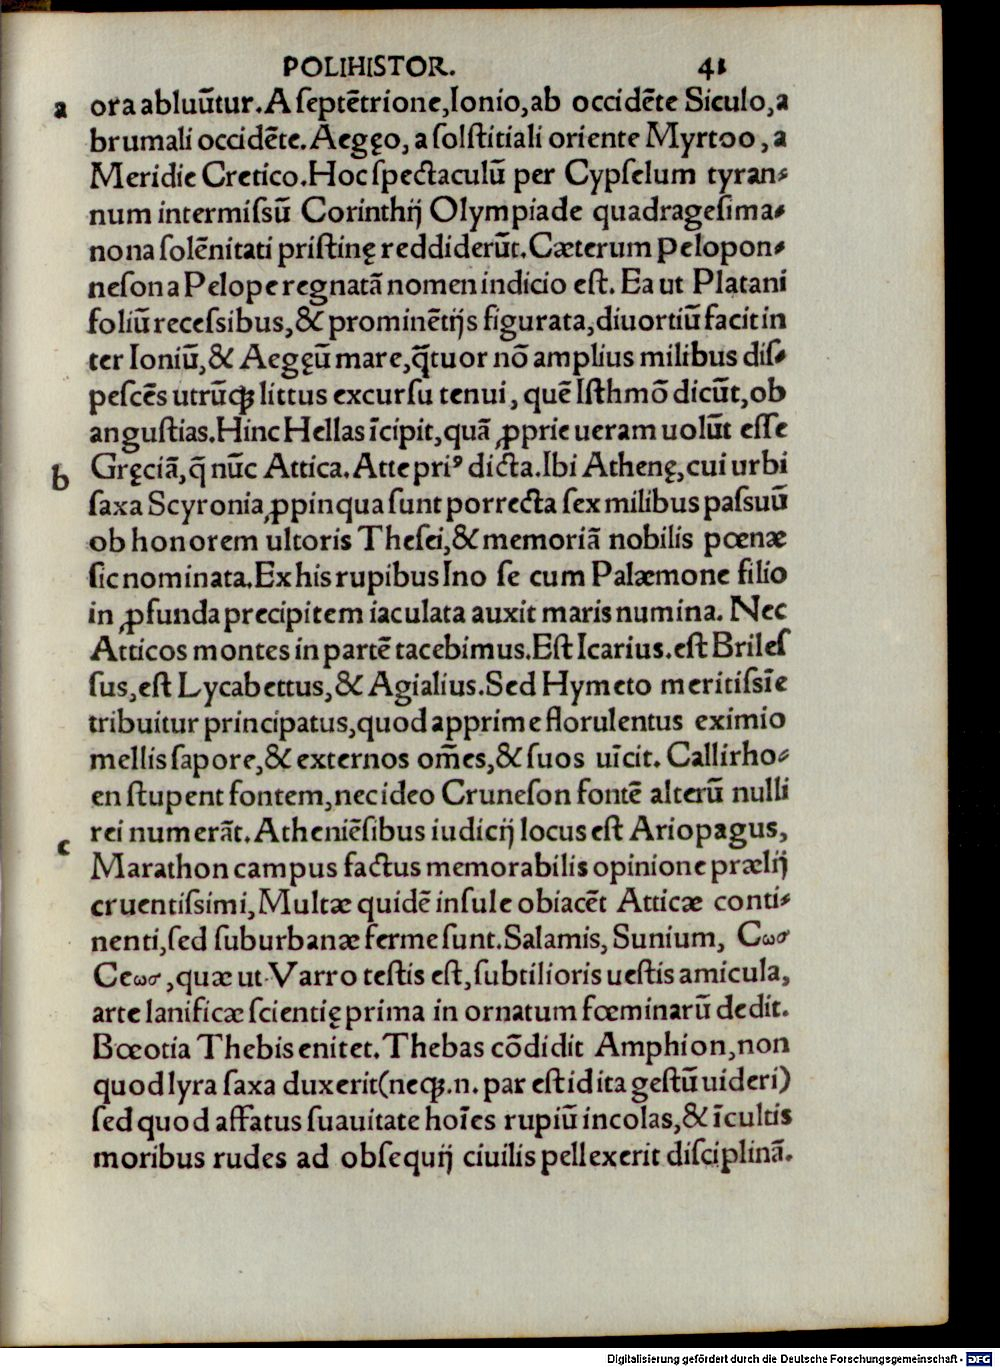 POLIHISTOR. 41
a ora abluũtur. A ſeptẽtrione, Ionio, ab occidẽte Siculo, a
brumali occidẽte. Aegęo, a ſolſtitiali oriente Myrtoo, a
Meridie Cretico. Hoc ſpectaculũ per Cypſelum tyran⸗
num intermiſsũ Corinthĳ Olympiade quadrageſima⸗
nona ſolẽnitati priſtinę reddiderũt. Cæterum Pelopon⸗
neſon a Pelope regnatã nomen indicio eſt. Ea ut Platani
foliũ receſsibus, & prominẽtĳs figurata, diuortiũ facit in
ter Ioniũ, & Aegęũ mare, q̃tuor nõ amplius milibus diſ⸗
peſcẽs utrũqꝫ littus excurſu tenui, quẽ Iſthmõ dicũt, ob
anguſtias. Hinc Hellas ĩcipit, quã ꝓprie ueram uolũt eſſe
b Gręciã, q̃ nũc Attica. Atte priꝰ dicta. Ibi Athenę, cui urbi
ſaxa Scyronia ꝓpinqua ſunt porrecta ſex milibus paſsuũ
ob honorem ultoris Theſei, & memoriã nobilis pœnæ
ſic nominata. Ex his rupibus Ino ſe cum Palæmone filio
in ꝓfunda precipitem iaculata auxit maris numina. Nec
Atticos montes in partẽ tacebimus. Eſt Icarius. eſt Brileſ
ſus, eſt Lycabettus, & Agialius. Sed Hymeto meritiſsĩe
tribuitur principatus, quod apprime florulentus eximio
mellis ſapore, & externos om̃es, & ſuos uĩcit. Callirho⸗
en ſtupent fontem, nec ideo Cruneſon fontẽ alterũ nulli
rei numerãt. Atheniẽſibus iudicĳ locus eſt Ariopagus,
c Marathon campus factus memorabilis opinione prælĳ
cruentiſsimi, Multæ quidẽ inſule obiacẽt Atticæ conti⸗
nenti, ſed ſuburbanæ ferme ſunt. Salamis, Sunium, Cωσ
Ceωσ, quæ ut Varro teſtis eſt, ſubtilioris ueſtis amicula,
arte lanificæ ſcientię prima in ornatum fœminarũ dedit.
Bœotia Thebis enitet. Thebas cõdidit Amphion, non
quod lyra ſaxa duxerit (neqꝫ .n. par eſt id ita geſtũ uideri)
ſed quod affatus ſuauitate hoĩes rupiũ incolas, & ĩcultis
moribus rudes ad obſequĳ ciuilis pellexerit diſciplinã.
Digitalisierung gefördert durch die Deutsche Forschungsgemeinschaft - DFG